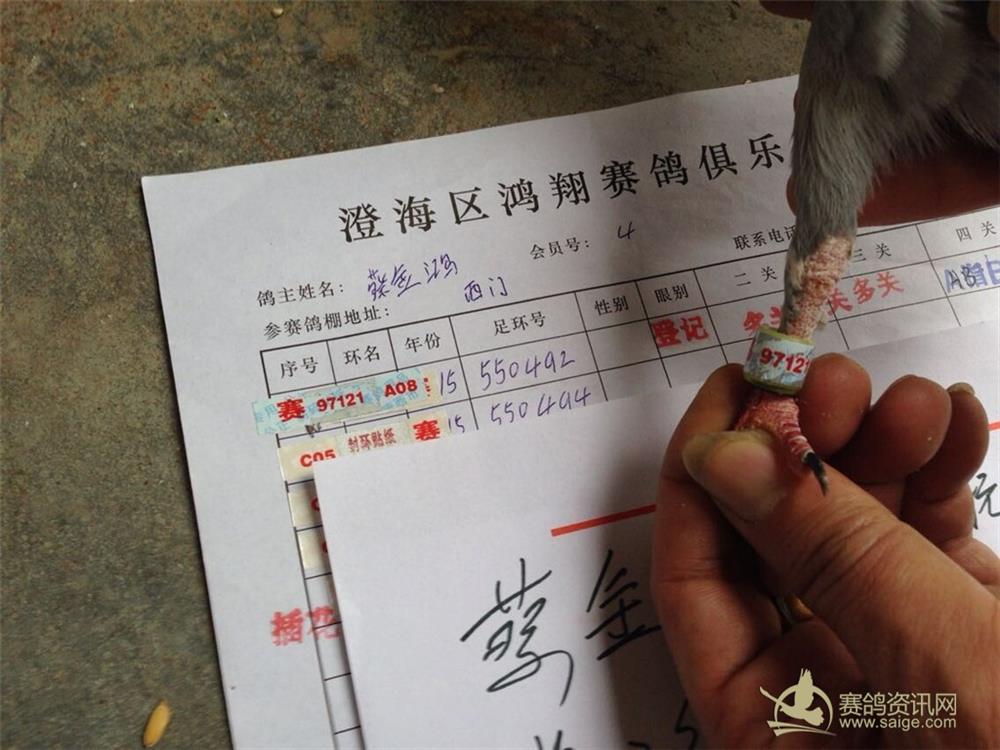 澄海区鸿翔赛鸽俱乐
鸽主姓名: 蔡金鸿 会员号: 4 联系电话
参赛鸽棚地址: 西门
序号 环名 年份 足环号 性别 眼别 二关 三关 四关
赛 97121 A08 15 550492 登记 关多关
97121
C05 封环贴纸 赛 15 550494
插花
蔡金
赛鸽资讯网
www.saige.com